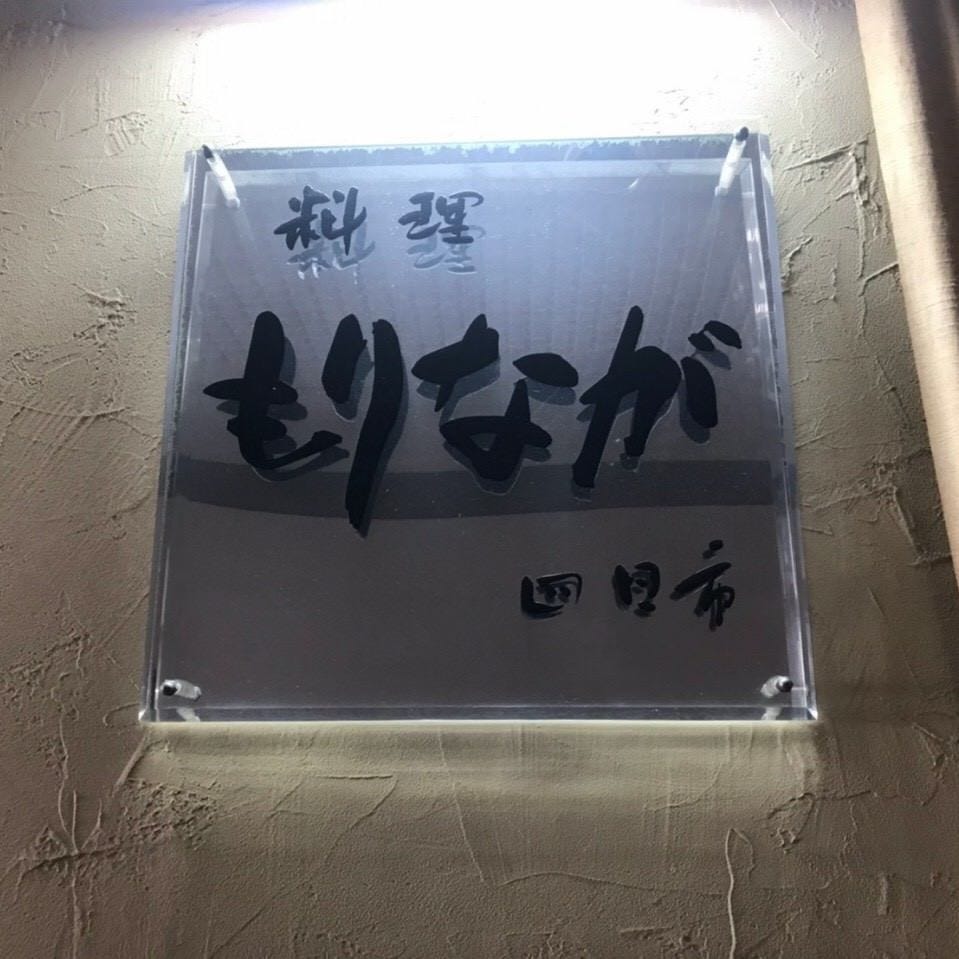 料理
もりなが
四日市